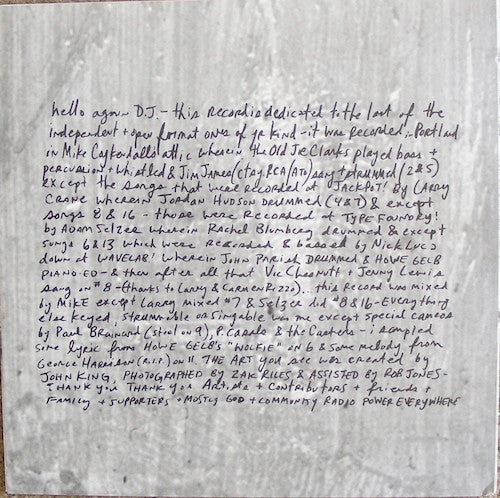 hello again D.J. - this record is dedicated to the last of the
independent + open format ones of yr kind - it was recorded in Portland
in Mike Coykendalls attic wherein the Old Joe Clarks played bass +
percussion + whistled & Jim James (ctsy. RCA/ATO) sang + drummed (2 & 5)
except the songs that were recorded at JACKPOT! By LARRY
CRANE wherein JORDAN HUDSON DRUMMED (4 & 7) & except
songs 8 & 16 - those were Recorded at TYPE FOUNDRY!
by ADAM Selzer wherein Rachel Blumberg drummed & except
songs 6 & 13 which were recorded & bassed by Nick Luca
down at WAVELAB! wherein JOHN Parish DRUMMED & HOWE GELB
PIANO-ED - & then after all that Vic Chesnutt + Jenny Lewis
sang on #8 - (thanks to Larry & Carmen Rizzo).. this record was mixed
by MIKE except Larry mixed #7 & Selzer did #8 & 16 - Everything
else keyed, strummable or singable was me except special cameos
by Paul Brainard (steel on 9), P. Cardo & the Casters - i sampled
some lyric from HOWE GELB'S "WOLFIE" on 6 & some melody from
George Harrison (R.I.P.) on 11 THE ART you see was created by
JOHN KING, PHOTOGRAPHED BY ZAK RILES & ASSISTED BY ROB JONES -
THANK YOU THANK YOU Artists + Contributors + friends +
FAMILY + SUPPORTERS + MOSTLY GOD + COMMUNITY RADIO POWER EVERYWHERE